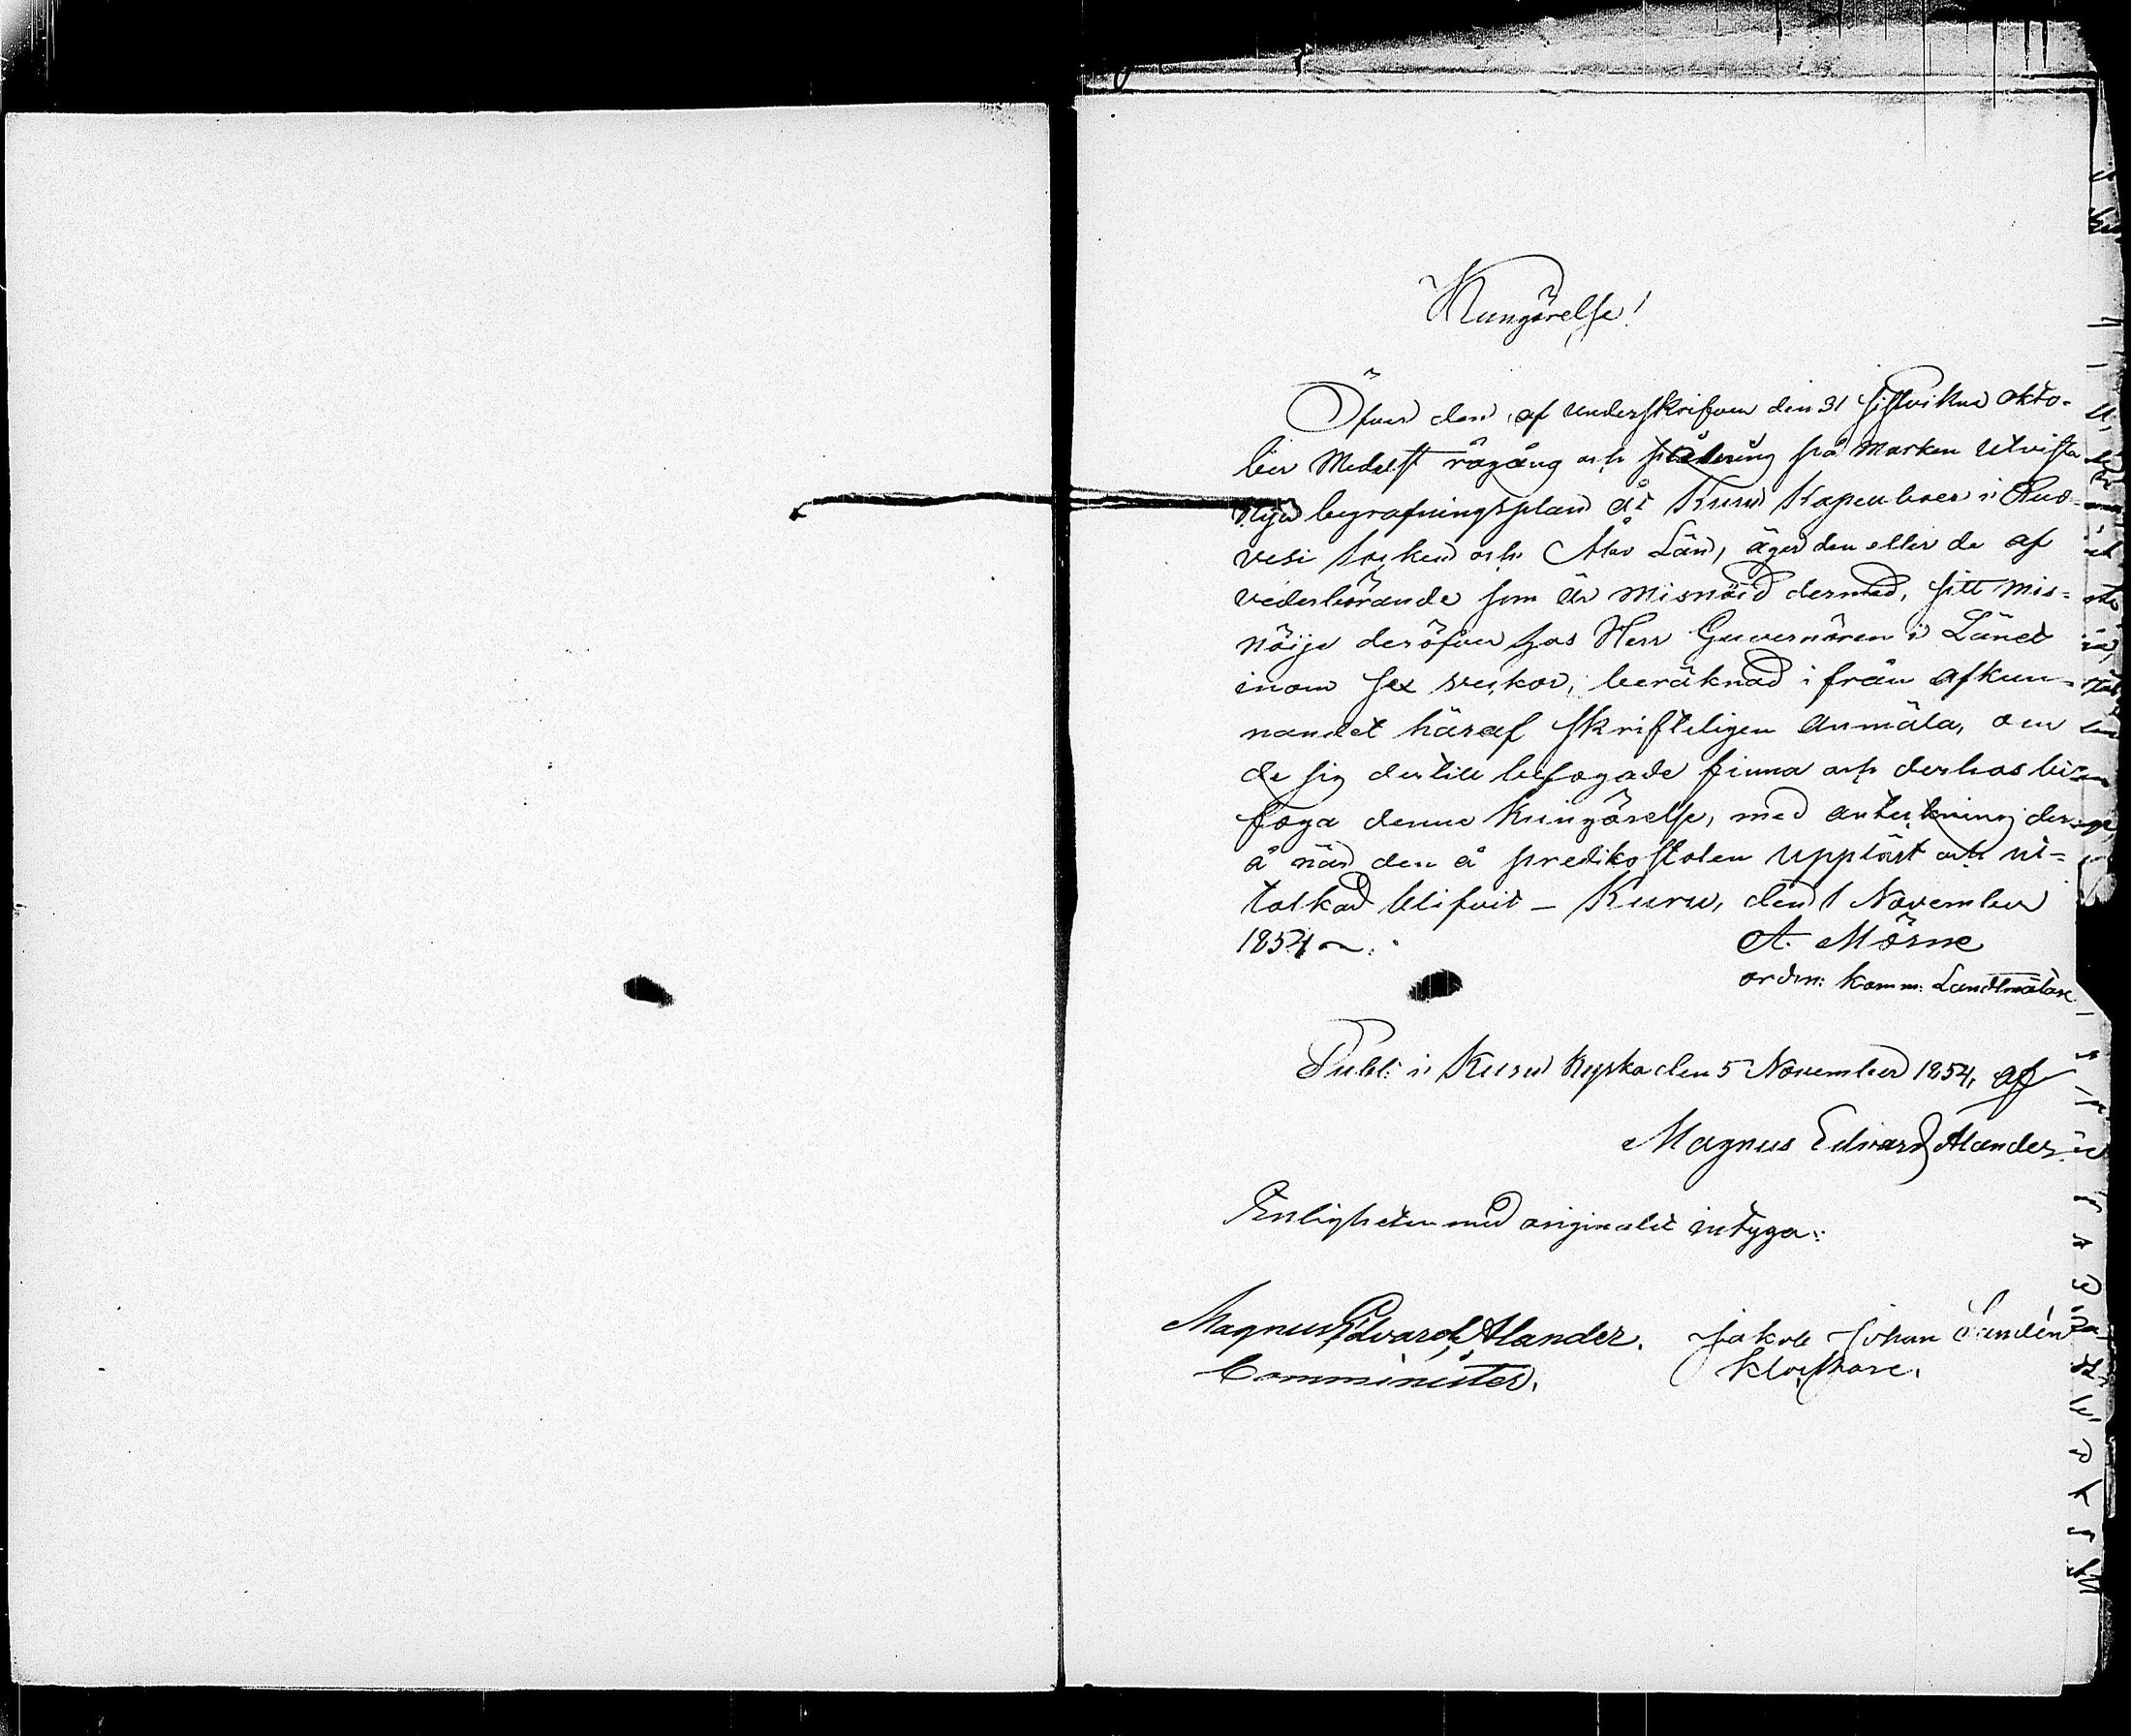 Kungörelse!
Öfver den af Underskrifven den 31 sistvikne Okto-
ber Medelst rågång och på Marken Utvista
Nya begrafningsplan åt Kuru Kapellboer i Ruo-
vesi Socken och Åbo Län, äger den eller de af
vederbörande som är Misnöid dermed, sitt Mis-
nöije deröfver hos Herr Guvernören i Länet
inom sex veckor, beräknad ifrån afkun-
nandet häraf skrifteligen Anmäla, om
de sig dertill befogade finna och derhos bi-
foga denne Kungörelse, med anteckning der-
å när den å predikostolen uppläst och ut-
tolkad blifvit – Kuru, den 1 November
1854
A. Mörne
ordin: Komm: Landtmätare
Publ: i Kuru Kyrka den 5 November 1854, af
Magnus Edvard Alander
Enligheten med originalet intyga:
Magnus Edvard Alander. Jakob Johan Sandén
Comminister. Klockare.